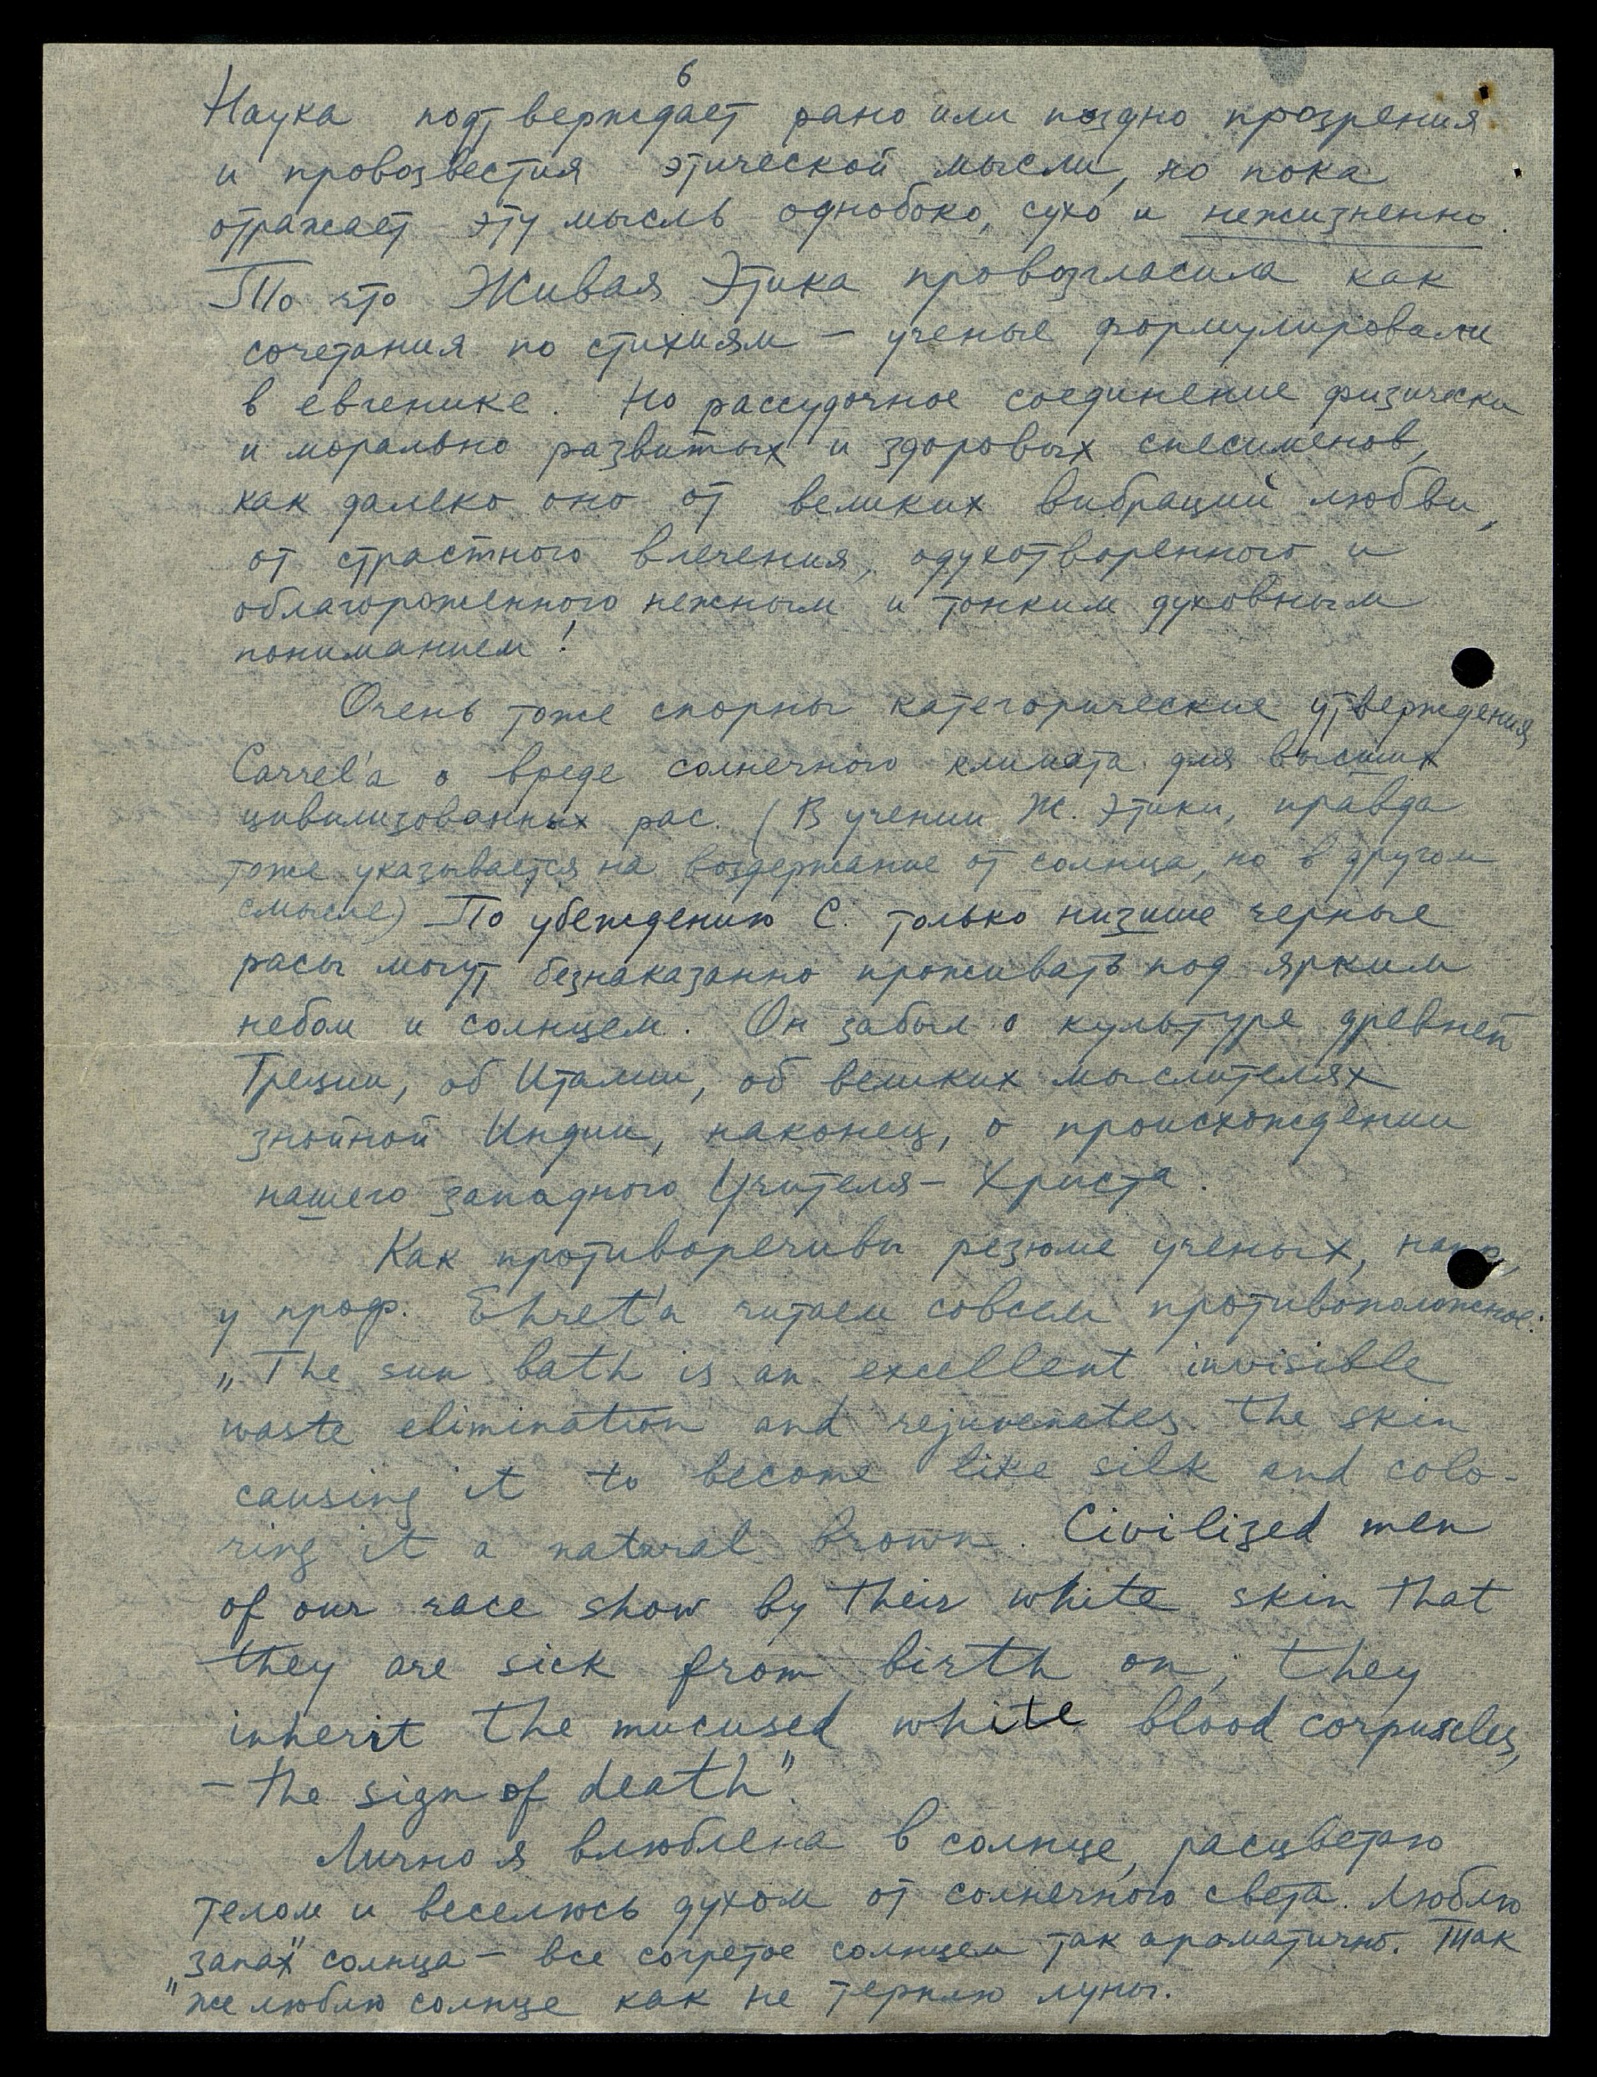 6
Наука подтверждает рано или поздно прозрения
и провозвестия этической мысли, но пока
отражает эту мысль однобоко, сухо и нежизненно.
То что Живая Этика провозгласила как
сочетания по стихиям – ученые формулировали
в евгенике. Но рассудочное соединение физически
и морально развитых и здоровых спесименов,
как далеко оно от великих вибраций любви,
от страстного влечения, одухотворенного и
облагороженного нежным и тонким духовным
пониманием!
Очень тоже спорны категорические утверждения
Carrel'a о вреде солнечного климата для высших
цивилизованных рас. (В учении Ж. Этики, правда
тоже указывается на воздержание от солнца, но в другом
смысле) По убеждению С. только низшие черные
расы могут безнаказанно проживать под ярким
небом и солнцем. Он забыл о культуре древней
Греции, об Италии, об великих мыслителях
знойной Индии, наконец, о происхождении
нашего западного Учителя – Христа.
Как противоречивы резюме ученых, напр,
у проф. Ehret'a читаем совсем противоположное:
„The sun bath is an excellent invisible
waste elimination and rejuvenates the skin
causing it to become like silk and colo-
ring it a natural brown. Civilized men
of our race show by their white skin that
they are sick from birth on; they
inherit the mucused white blood corpuscles,
– the sign of death".
Лично я влюблена в солнце, расцветаю
телом и веселюсь духом от солнечного света. Люблю
„запах" солнца – все согретое солнцем так ароматично. Так
же люблю солнце как не терплю луны.